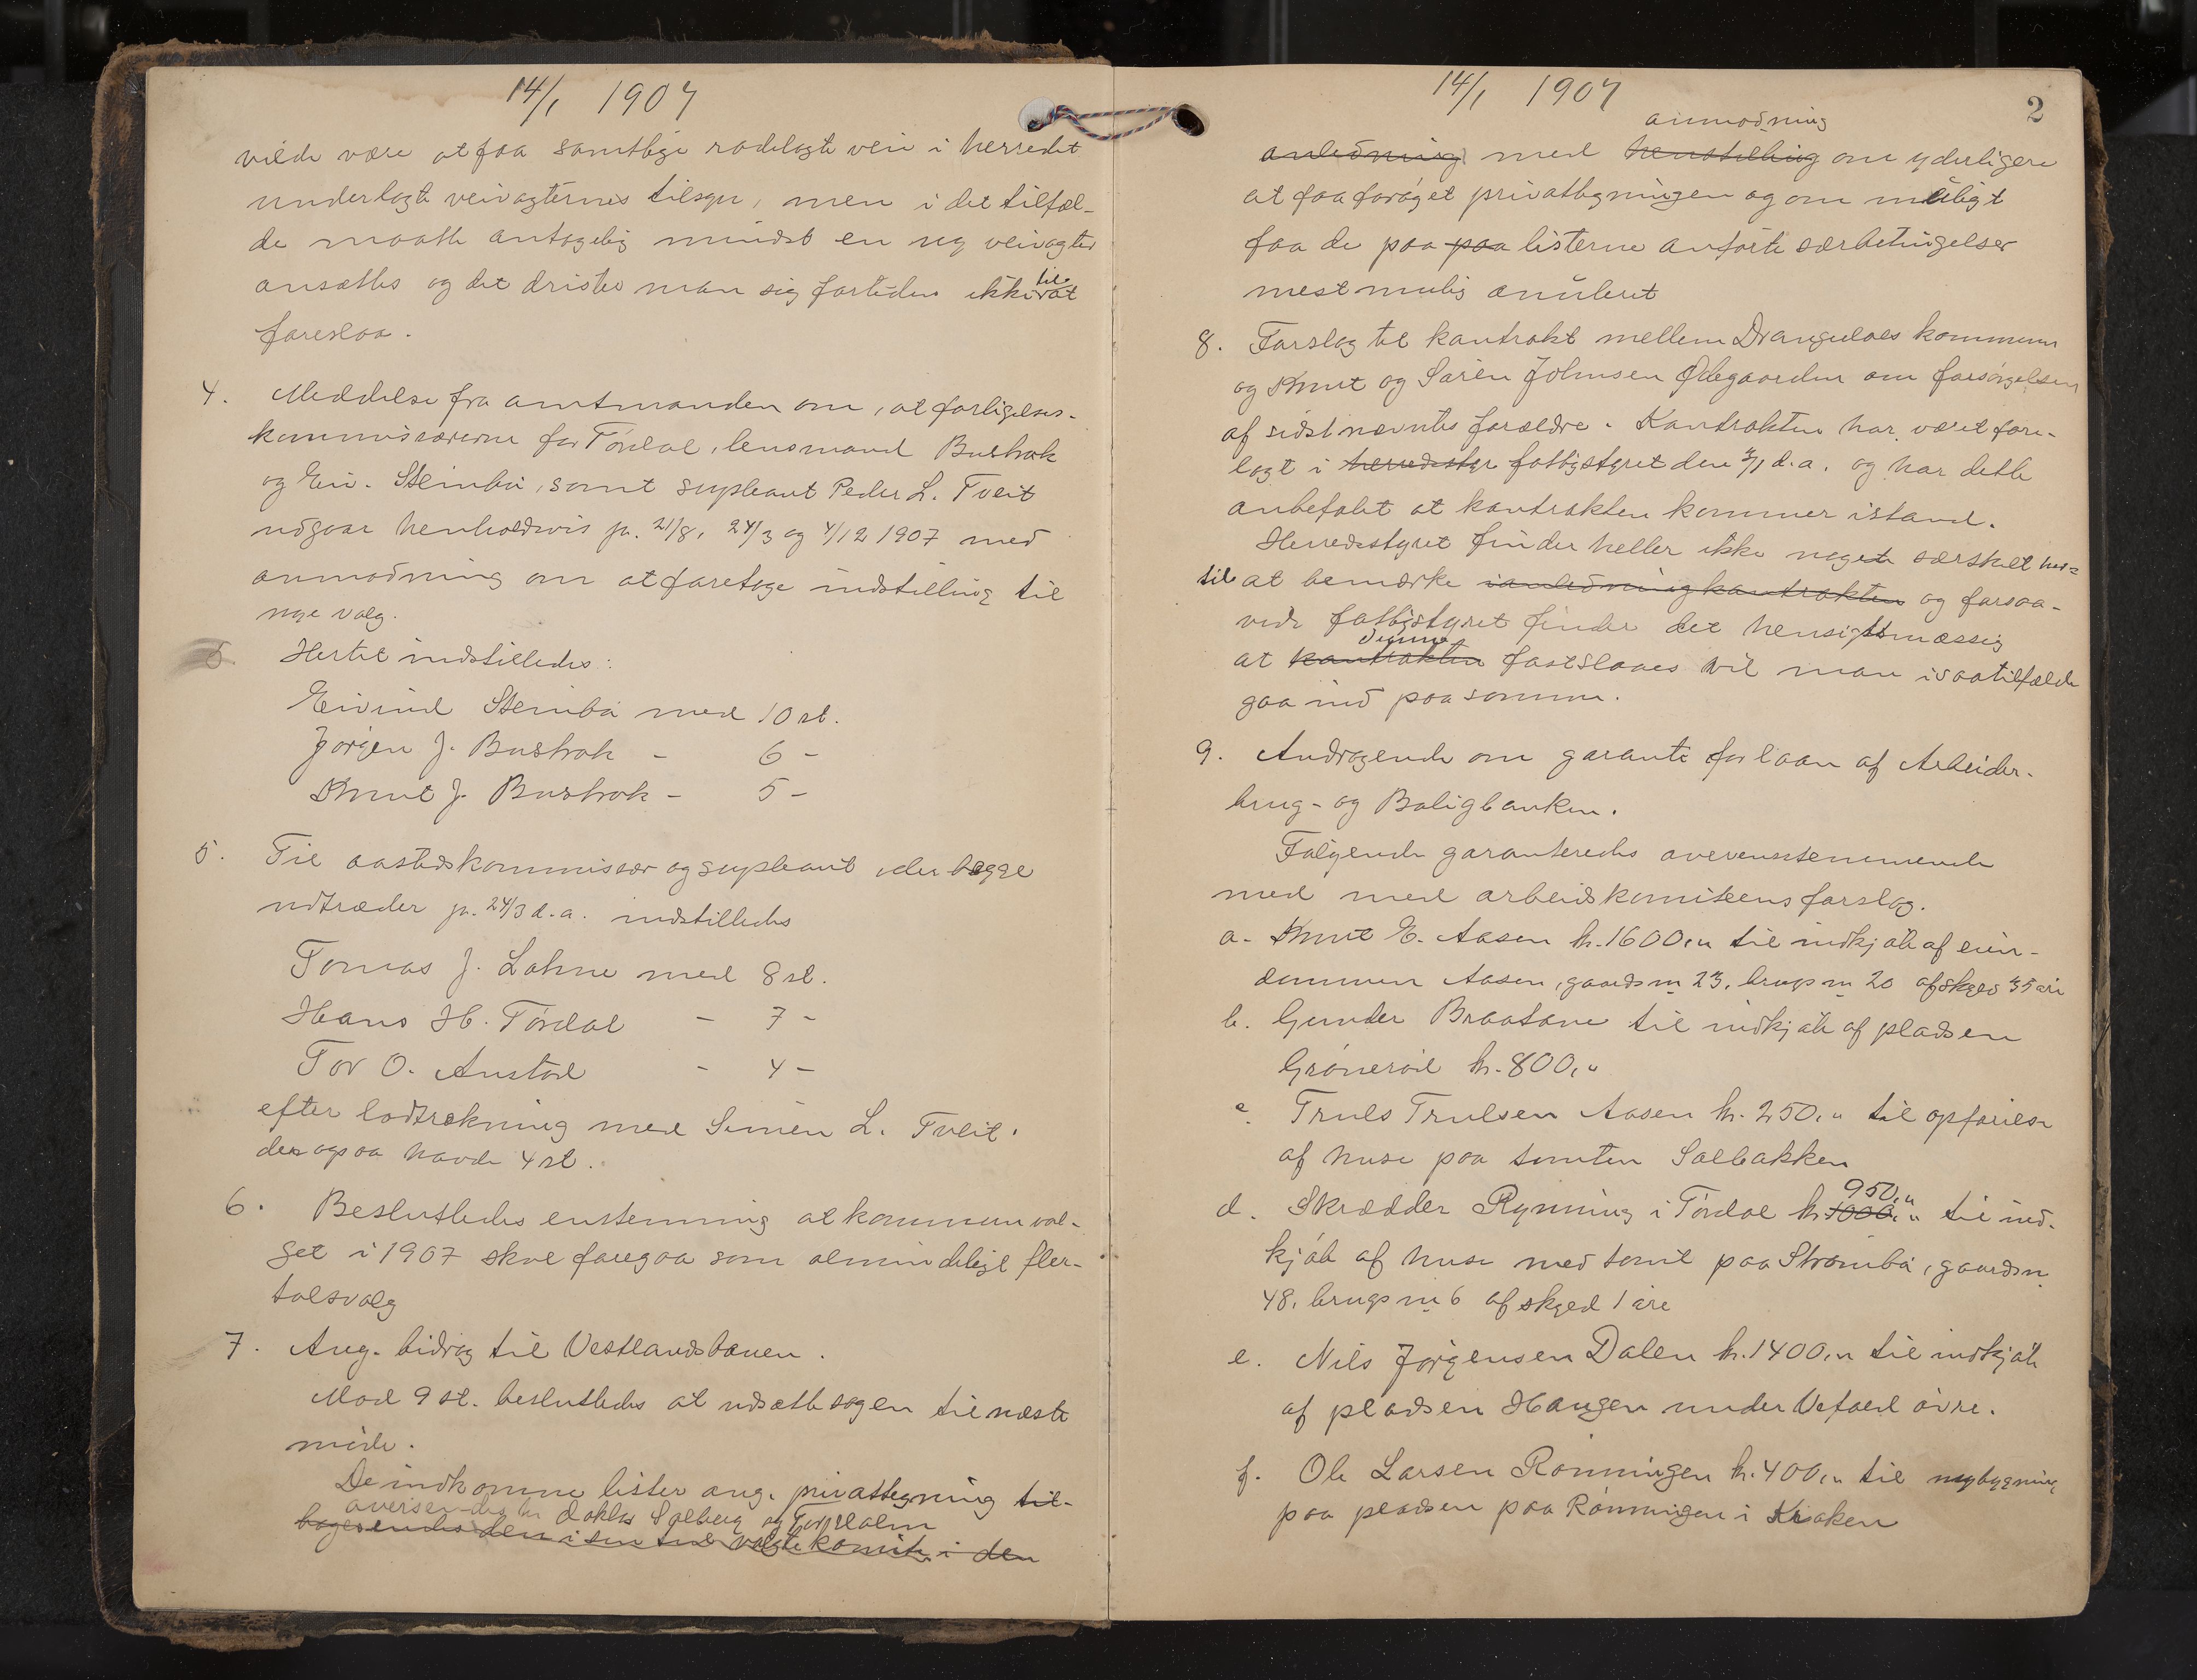 14/1 1907
vilde være at faa samtlige rodelagte veie i herredet
underlagt veivogternes tilsyn, men i det tilfæl-
de maatte antagelig mindst en ny veivogter
ansættes og det drister man sig fortiden ikke til at
foreslaa.
4. Meddelse fra amtmanden om, at forligelses-
kommissærerne for Tørdal, lensmand Bustrak
og Eiv. Steinbø, samt supleant Peder L. Tveit
udgaar henholdsvis pr. 21/8, 24/3 og 4/12 1907 med
anmodning om at foretage indstilling til
nye valg.
Hertil indstilledes:
Eivind Steinbø med 10 st.
Jørgen J. Bustrak - 6 -
Knut J. Bustrak - 5 -
5. Til aastedskommissær og supleant der begge
udtræder pr. 24/3 d.a. indstilledes
Tomas J. Lohne med 8 st.
Hans H. Tørdal - 7 -
Tor O. Austad - 4 -
efter lodtrækning med Simen L. Tveit.
der ogsaa havde 4 st.
6. Beslutledes enstemmig at kommuneval-
get i 1907 skal foregaa som almindeligt fler-
talsvalg
7. Ang. bidrag til Vestlandsbanen.
Mod 9 st. besluttedes at udsætte sagen til næste
møde.
De indkomne lister ang. privattegning til-
oversendes hr doktor Solberg og Torp Holm
bagesendes den i sin tid valgte komite i den
14/1 1907
2
anmodning
anledning med henstilling om yderligere
at faa forøget privattegningen og om muligt
faa de paa paa listerne anførte særbetingelser
mest mulig anuleret
8. Forslag til kontrakt mellem Drangedals kommune
og Knut og Søren Johnsen Ødegaarden om forsørgelsen
af sidstnævntes forældre. Kontrakten har været fore-
lagt i herredstyr fattigstyret den 3/1 d.a. og har dette
anbefalet at kontrakten kommer istand.
Herredsstyret finder heller ikke noget særskilt her-
til at bemærke ianledning kontrakten og forsaa-
vidt fattigstyret finder det hensigtsmæssig
denne
at kontrakten fastslaaes vil man isaatilfælde
gaa ind paa samme.
9. Andragende om garanti for laan af Arbeider-
brug- og Boligbanken.
Følgende garanteredes overensstemmende
med med arbeidskomiteens forslag.
a. Knut E. Aasen kr. 1600,„ til indkjøb af eien-
dommen Aasen, gaardsn 23, brugsn 20 af skyld 35 øre
b. Gunder Braatane til indkjøb af pladsen
Grønerød kr. 800,„
c. Truls Trulsen Aasen kr. 250,„ til opførelse
af huse paa tomten Solbakken
950,„
d. Skrædder Rynning i Tørdal kr. 1000,„ til ind-
kjøb af huse med tomt paa Strømbø, gaardsn
48, brugsn 6 af skyld 1 øre
e. Nils Jørgensen Dalen kr. 1400,„ til indkjøb
af pladsen Haugen under Vefald øvre.
f. Ole Larsen Rønningen kr. 400,„ til nybygning
paa pladsen paa Rønningen i Kroken